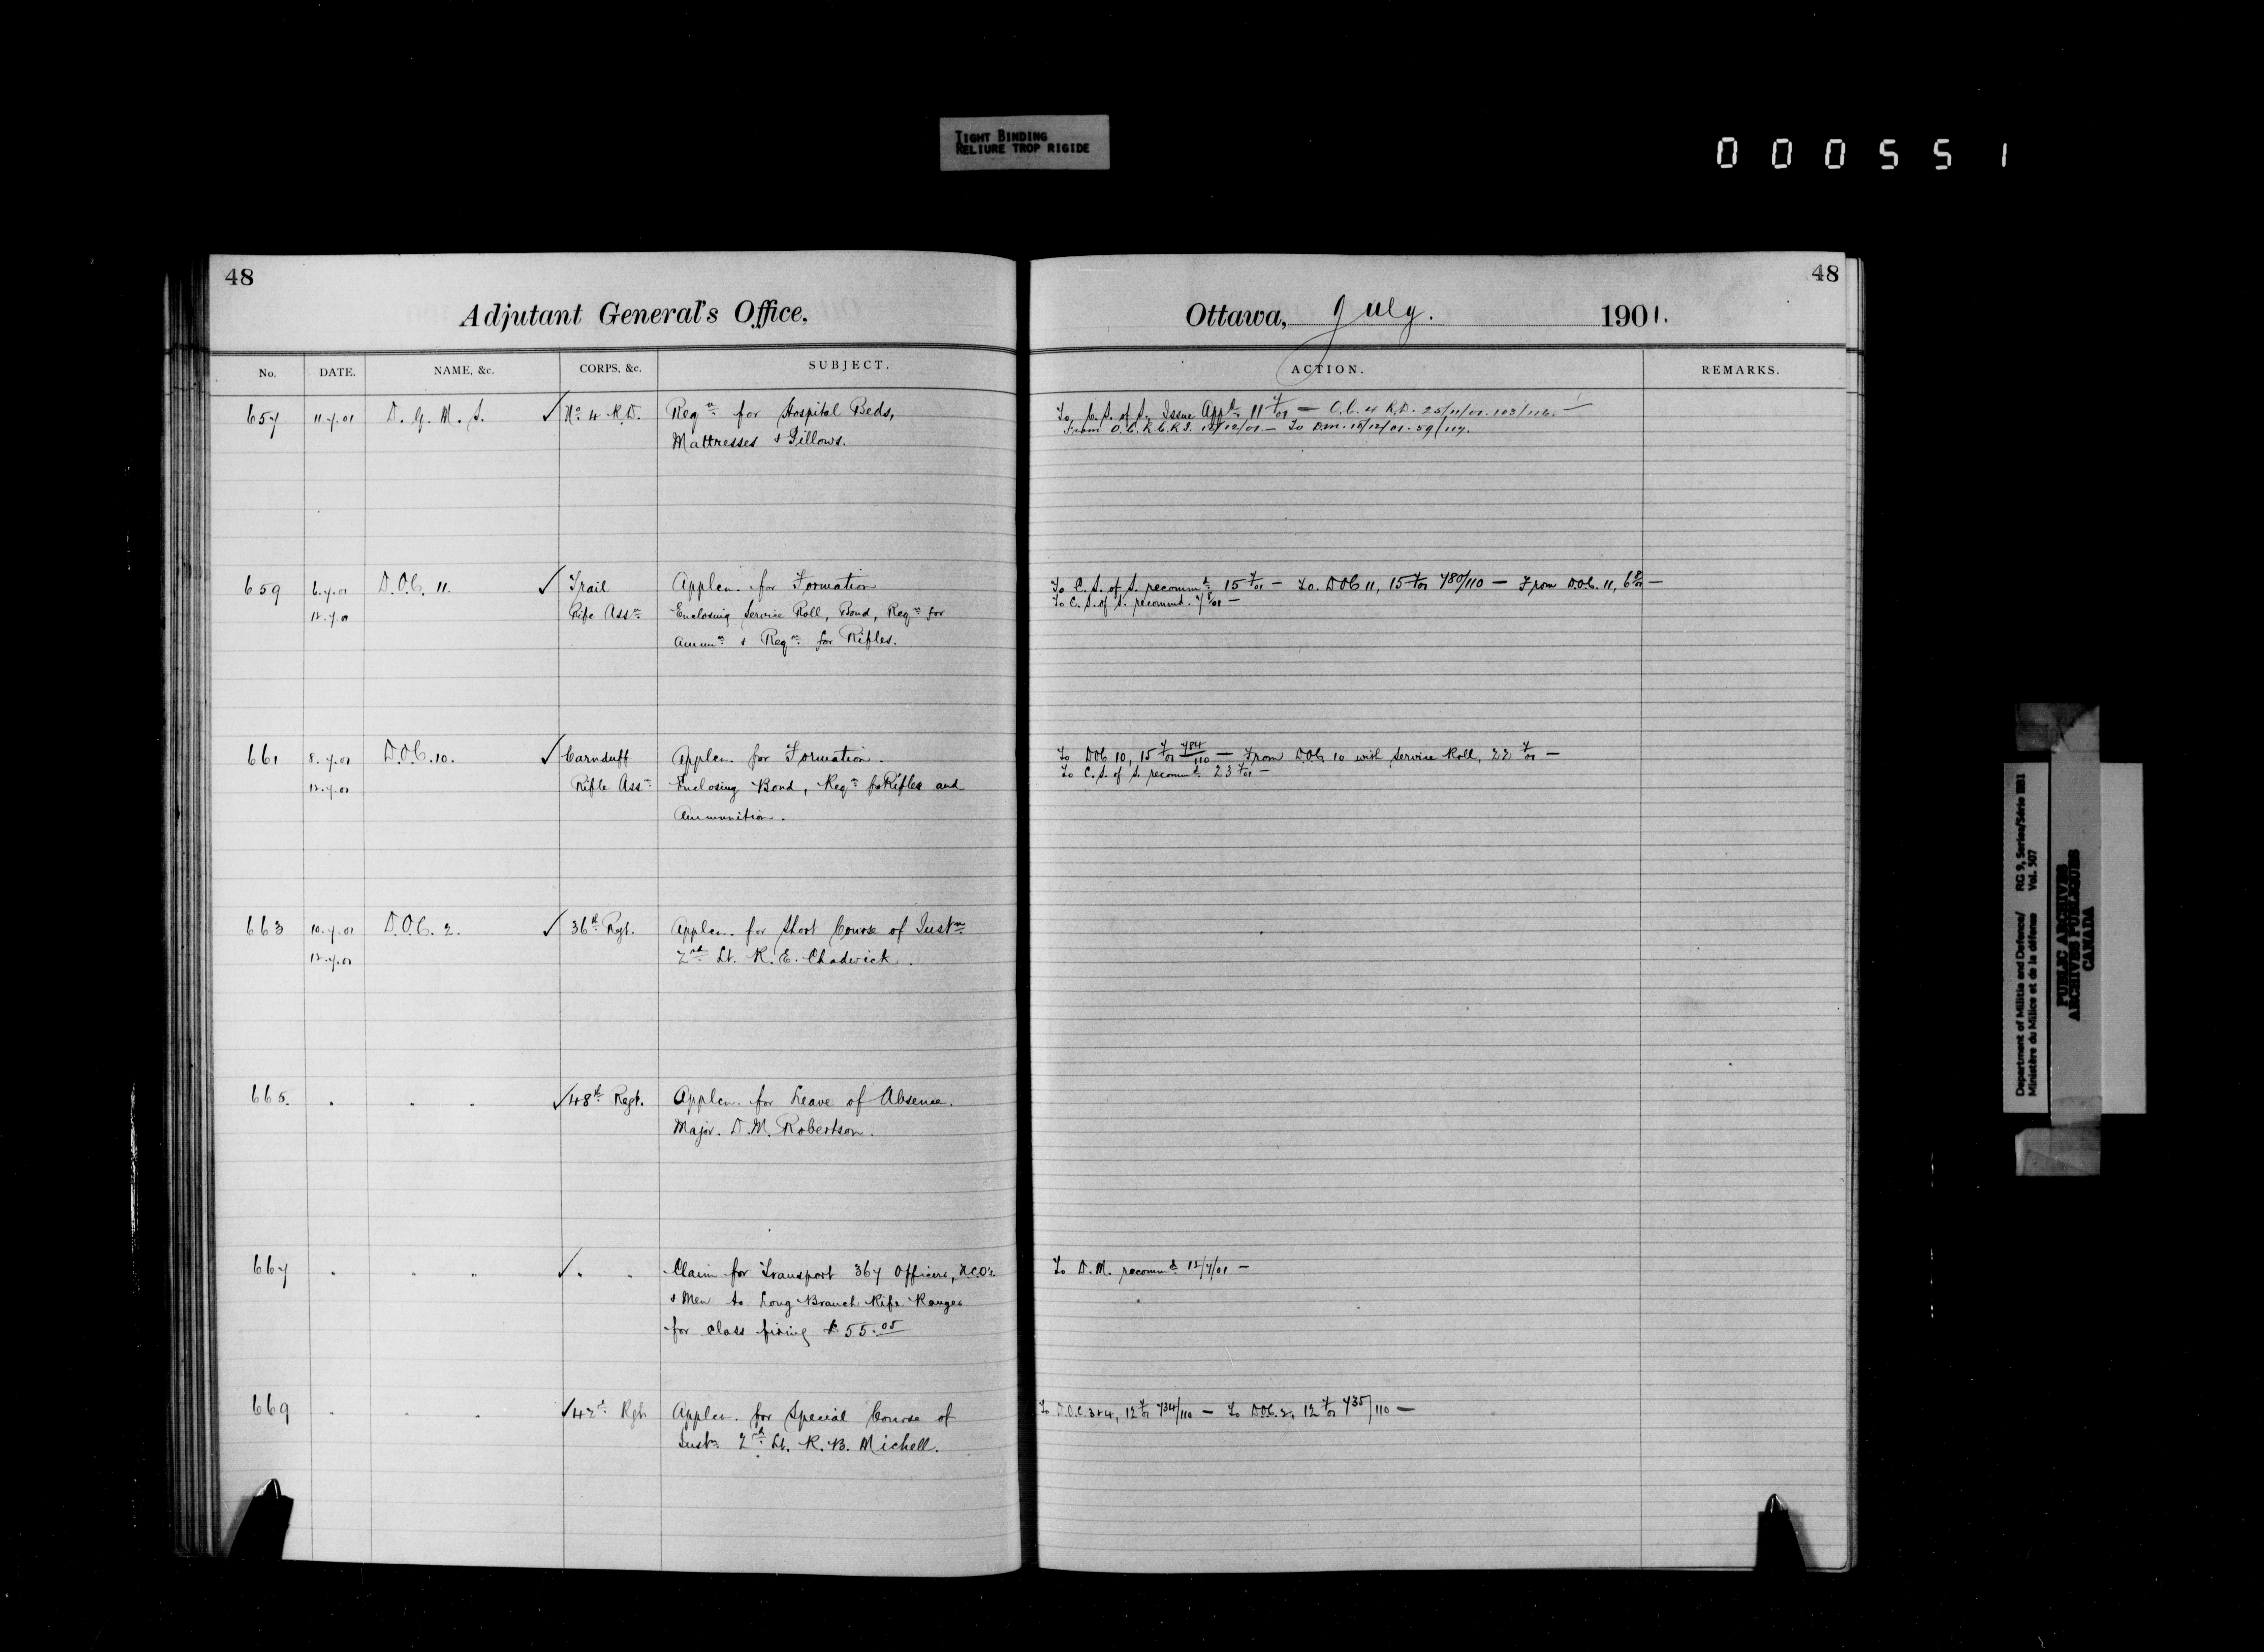 TIGHT BINDING
RELIURE TROP RIGIDE
000551
48
Adjutant General's Office.
No. DATE. NAME, &c. CORPS, &c. SUBJECT.
657 11.7.01 D. G. M. S. ✓ No. 4 R.D. Reqn. for Hospital Beds,
Mattresses & Pillows.
659 6.7.01 D.O.C. 11. ✓ Trail Applcn. for Formation
12.7.01 Rifle Assn. Enclosing Service Roll, Bond, Reqn. for
Ammn. & Reqn. for Rifles.
661 8.7.01 D.O.C. 10. ✓ Carnduff Applcn. for Formation.
12.7.01 Rifle Assn. Enclosing Bond, Reqn. for Rifles and
Ammunition.
663 10.7.01 D.O.C. 2. ✓ 36th Regt. Applcn. for Short Course of Instn.
12.7.01 2nd Lt. R. E. Chadwick.
665. . . . ✓ 48th Regt. Applcn. for Leave of Absence.
Major. D. M. Robertson.
667 . . . ✓ . . Claim for Transport 367 Officers, N.C.O's.
& Men to Long Branch Rifle Ranges
for class firing $55.05
669 . . . ✓ 42nd Rgt. Applcn. for Special Course of
Instn. 2nd Lt. R. B. Michell.
48
Ottawa, July. 1901.
ACTION. REMARKS.
To C. S. of S. Issue Appd. 11/7/01 — O.C. 4 R.D. 25/11/01. 103/116. —
From O.C. R.C.R.I. 12/12/01 — To D.M. 18/12/01. 59/117.
To C. S. of S. recommd. 15/7/01 — To. DOC 11, 15/7/01 780/110 — From D.O.C. 11, 6/8/01 —
To C. S. of S. recommd. 7/8/01 —
To DOC 10, 15/7/01 784/110 — From D.O.C. 10 with Service Roll, 22/7/01 —
To C. S. of S. recommd. 23/7/01 —
To D.M. recommd. 12/7/01 —
To D.O.C. 3&4, 12/7/01 734/110 — To DOC. 2, 12/7/01 735/110 —
Department of Militia and Defence/ RG 9, Series/Série IIB1
Ministère du Milice et de la défense Vol. 507
PUBLIC ARCHIVES
ARCHIVES PUBLIQUES
CANADA